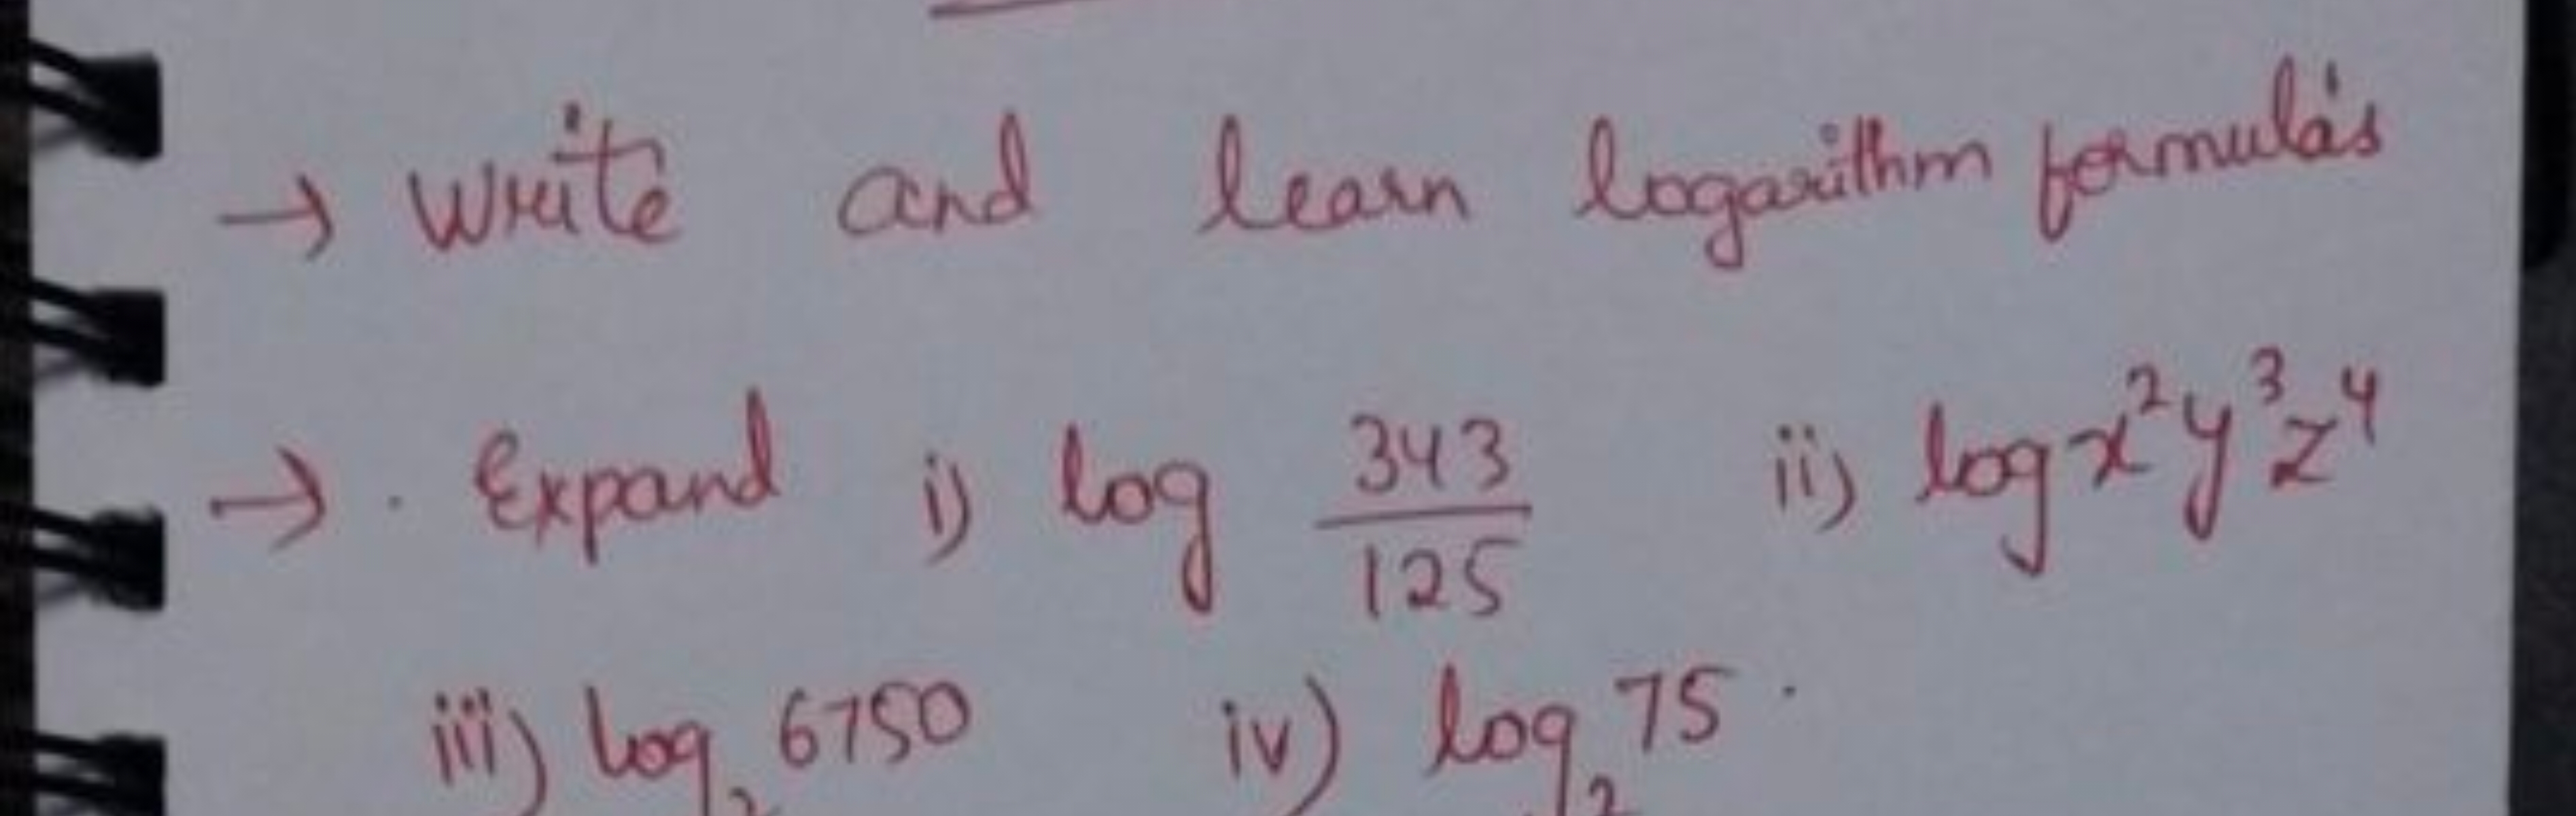 → Write and learn logarithm formula's
→ . Expand i) log 343/125 ii) log x²y³z⁴
iii) log₂ 6750 iv) log₂ 75 .